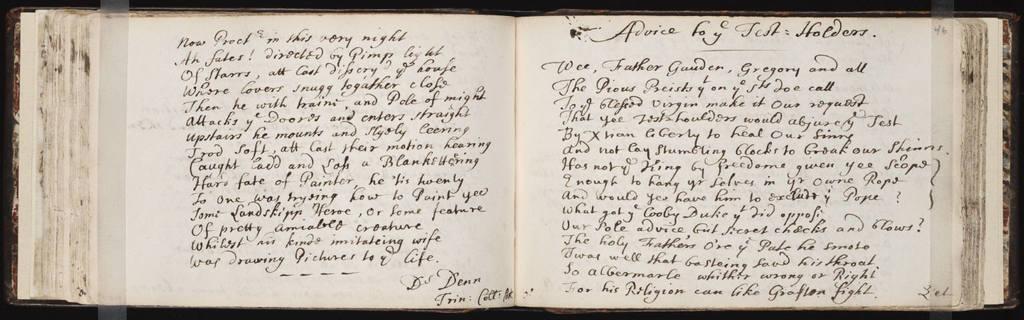 Now Proct.r in this very night
Ah fates! directed by Pimp light
Of Starrs, att last discry'd ye house
Where lovers snugg together close
Then he with traine and Pole of might
Attacks ye Doores and enters straight
Upstairs he mounts and slyly leering
Trod soft, att last their motion hearing
Caught Ladd and Lass a Blankettering
Hard fate of Painter he 'tis twenty
So one was trying how to Paint yee
Some Landskipp Heroe, or some feature
Of pretty amiable creature
Whilest his kinde imitateing wife
Was drawing Pictures to ye life.
Dr Denn
Trin: Coll:
46
Advice to ye Test=Holders.
Wee, Father Gauden, Gregory and all
The Pious Preists yt on ye Sts doe call
To ye blessed Virgin make it Our request
That yee Test-houlders would abjure ye Test
By Xtian liberty to heal Our Sinns
And not lay stumbling blocks to break our Shinns
Has not ye King by freedome given yee Scope
Enough to hang yr selves in yr Owne Rope
And would yee have him to exclude ye Pope?
What got ye Looby Duke yt did oppose
Our Pole advice but secret checks and blows?
The holy Fathers O're ye Pate he smote
Twas well that basteing sav'd his throat
So Albermarle whither wrong or Right
For his Religion can like Grafton fight.
Let